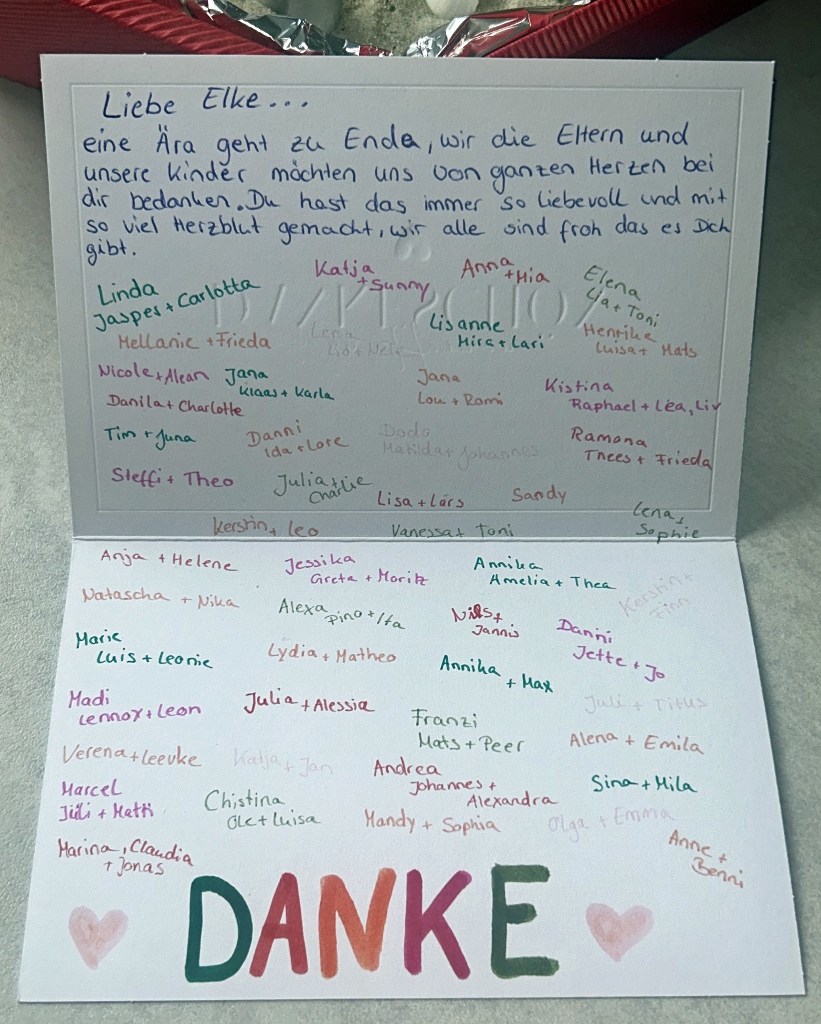 Liebe Elke...
eine Ära geht zu Ende, wir die Eltern und
unsere Kinder möchten uns von ganzen Herzen bei
dir bedanken. Du hast das immer so liebevoll und mit
so viel Herzblut gemacht, wir alle sind froh das es Dich
gibt.
Linda
Jasper + Carlotta
Katja
+ Sunny
Anna
+ Mia
Elena
Lia + Toni
Mellanie + Frieda
Lena
Lisanne
Mira + Lari
Henrike
Luisa + Mats
Nicole + Alean
Jana
Klaas + Karla
Jana
Lou + Romi
Kistina
Raphael + Lea, Liv
Danila + Charlotte
Tim + Juna
Danni
Ida + Lore
Dodo
Matilda + Johannes
Ramona
Thees + Frieda
Steffi + Theo
Julia + Charlie
Lisa + Lars
Sandy
Lena +
Sophie
Kerstin + Leo
Vanessa + Toni
Anja + Helene
Jessika
Greta + Moritz
Annika
Amelia + Thea
Kerstin +
Finn
Natascha + Nika
Alexa
Pino + Ita
Nils +
Jannis
Danni
Jette + Jo
Marie
Luis + Leonie
Lydia + Matheo
Annika
+ Max
Madi
Lennox + Leon
Julia + Alessia
Franzi
Mats + Peer
Juli + Titus
Verena + Leevke
Katja + Jan
Andrea
Johannes +
Alexandra
Alena + Emila
Marcel
Juli + Matti
Chistina
Ole + Luisa
Sina + Mila
Mandy + Sophia
Olga + Emma
Marina, Claudia
+ Jonas
Anne +
Benni
DANKE